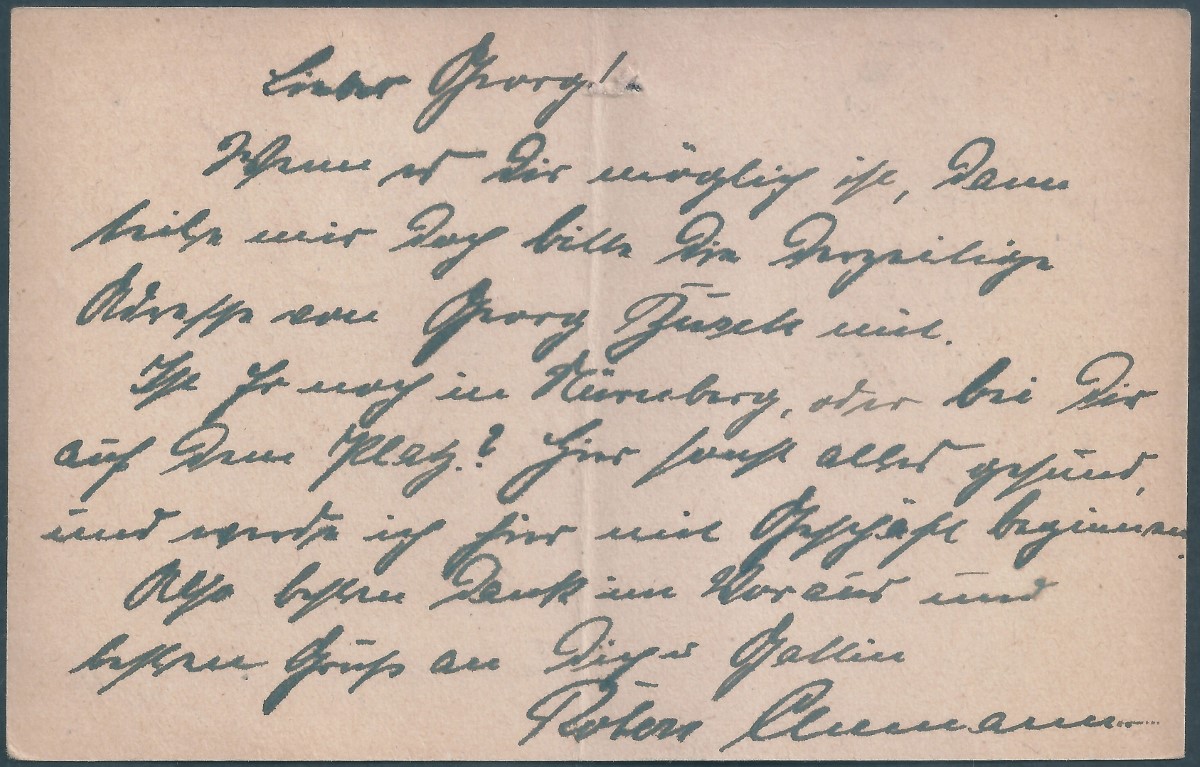 Lieber Georg!
Wenn es Dir möglich ist, dann
teile mir doch bitte die derzeitige
Adresse von Georg mit.
Ist Er noch in Nürnberg, oder bei Dir
auf dem Platz? Hier sonst alles gesund,
und werde ich hier mit Geschäft beginnen.
Also besten Dank im Voraus und
besten Gruß an Dich u Gattin
Robert